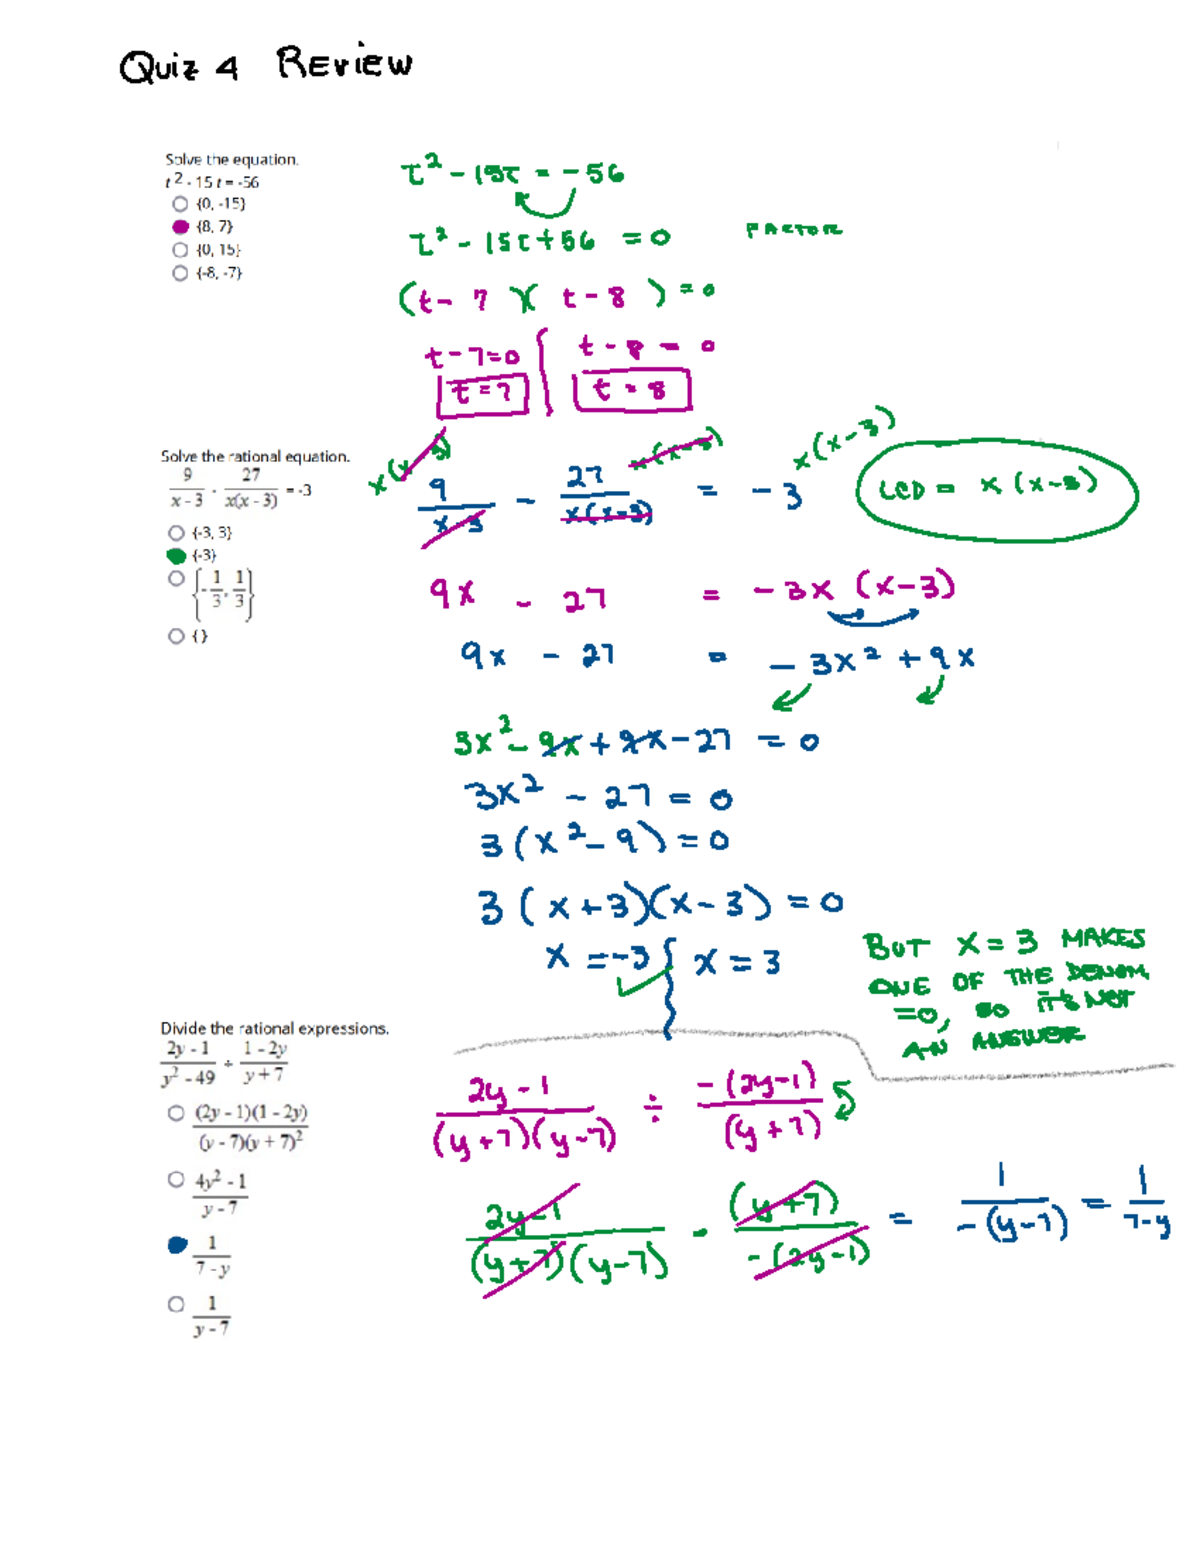 Quiz 4 Review
Solve the equation.
t² - 15 t = -56
{0, -15}
{8, 7}
{0, 15}
{-8, -7}
t² - 15t = -56
t² - 15t + 56 = 0 FACTOR
(t - 7)(t - 8) = 0
t - 7 = 0 t - 8 = 0
t = 7 t = 8
Solve the rational equation.
9/(x - 3) - 27/(x(x - 3)) = -3
{-3, 3}
{-3}
{-1/3, 1/3}
{ }
x(x-3) x(x-3) x(x-3)
9/(x-3) - 27/(x(x-3)) = -3
LCD = x(x-3)
9x - 27 = -3x(x-3)
9x - 27 = -3x² + 9x
3x² - 9x + 9x - 27 = 0
3x² - 27 = 0
3(x² - 9) = 0
3(x+3)(x-3) = 0
x = -3 x = 3
BUT X = 3 MAKES
ONE OF THE DENOM.
=0, SO IT'S NOT
AN ANSWER
Divide the rational expressions.
(2y - 1)/(y² - 49) ÷ (1 - 2y)/(y + 7)
(2y - 1)(1 - 2y)/((y - 7)(y + 7)²)
(4y² - 1)/(y - 7)
1/(7 - y)
1/(y - 7)
(2y-1)/((y+7)(y-7)) ÷ -(2y-1)/(y+7)
(2y-1)/((y+7)(y-7)) · (y+7)/(-(2y-1)) = 1/(-(y-7)) = 1/(7-y)